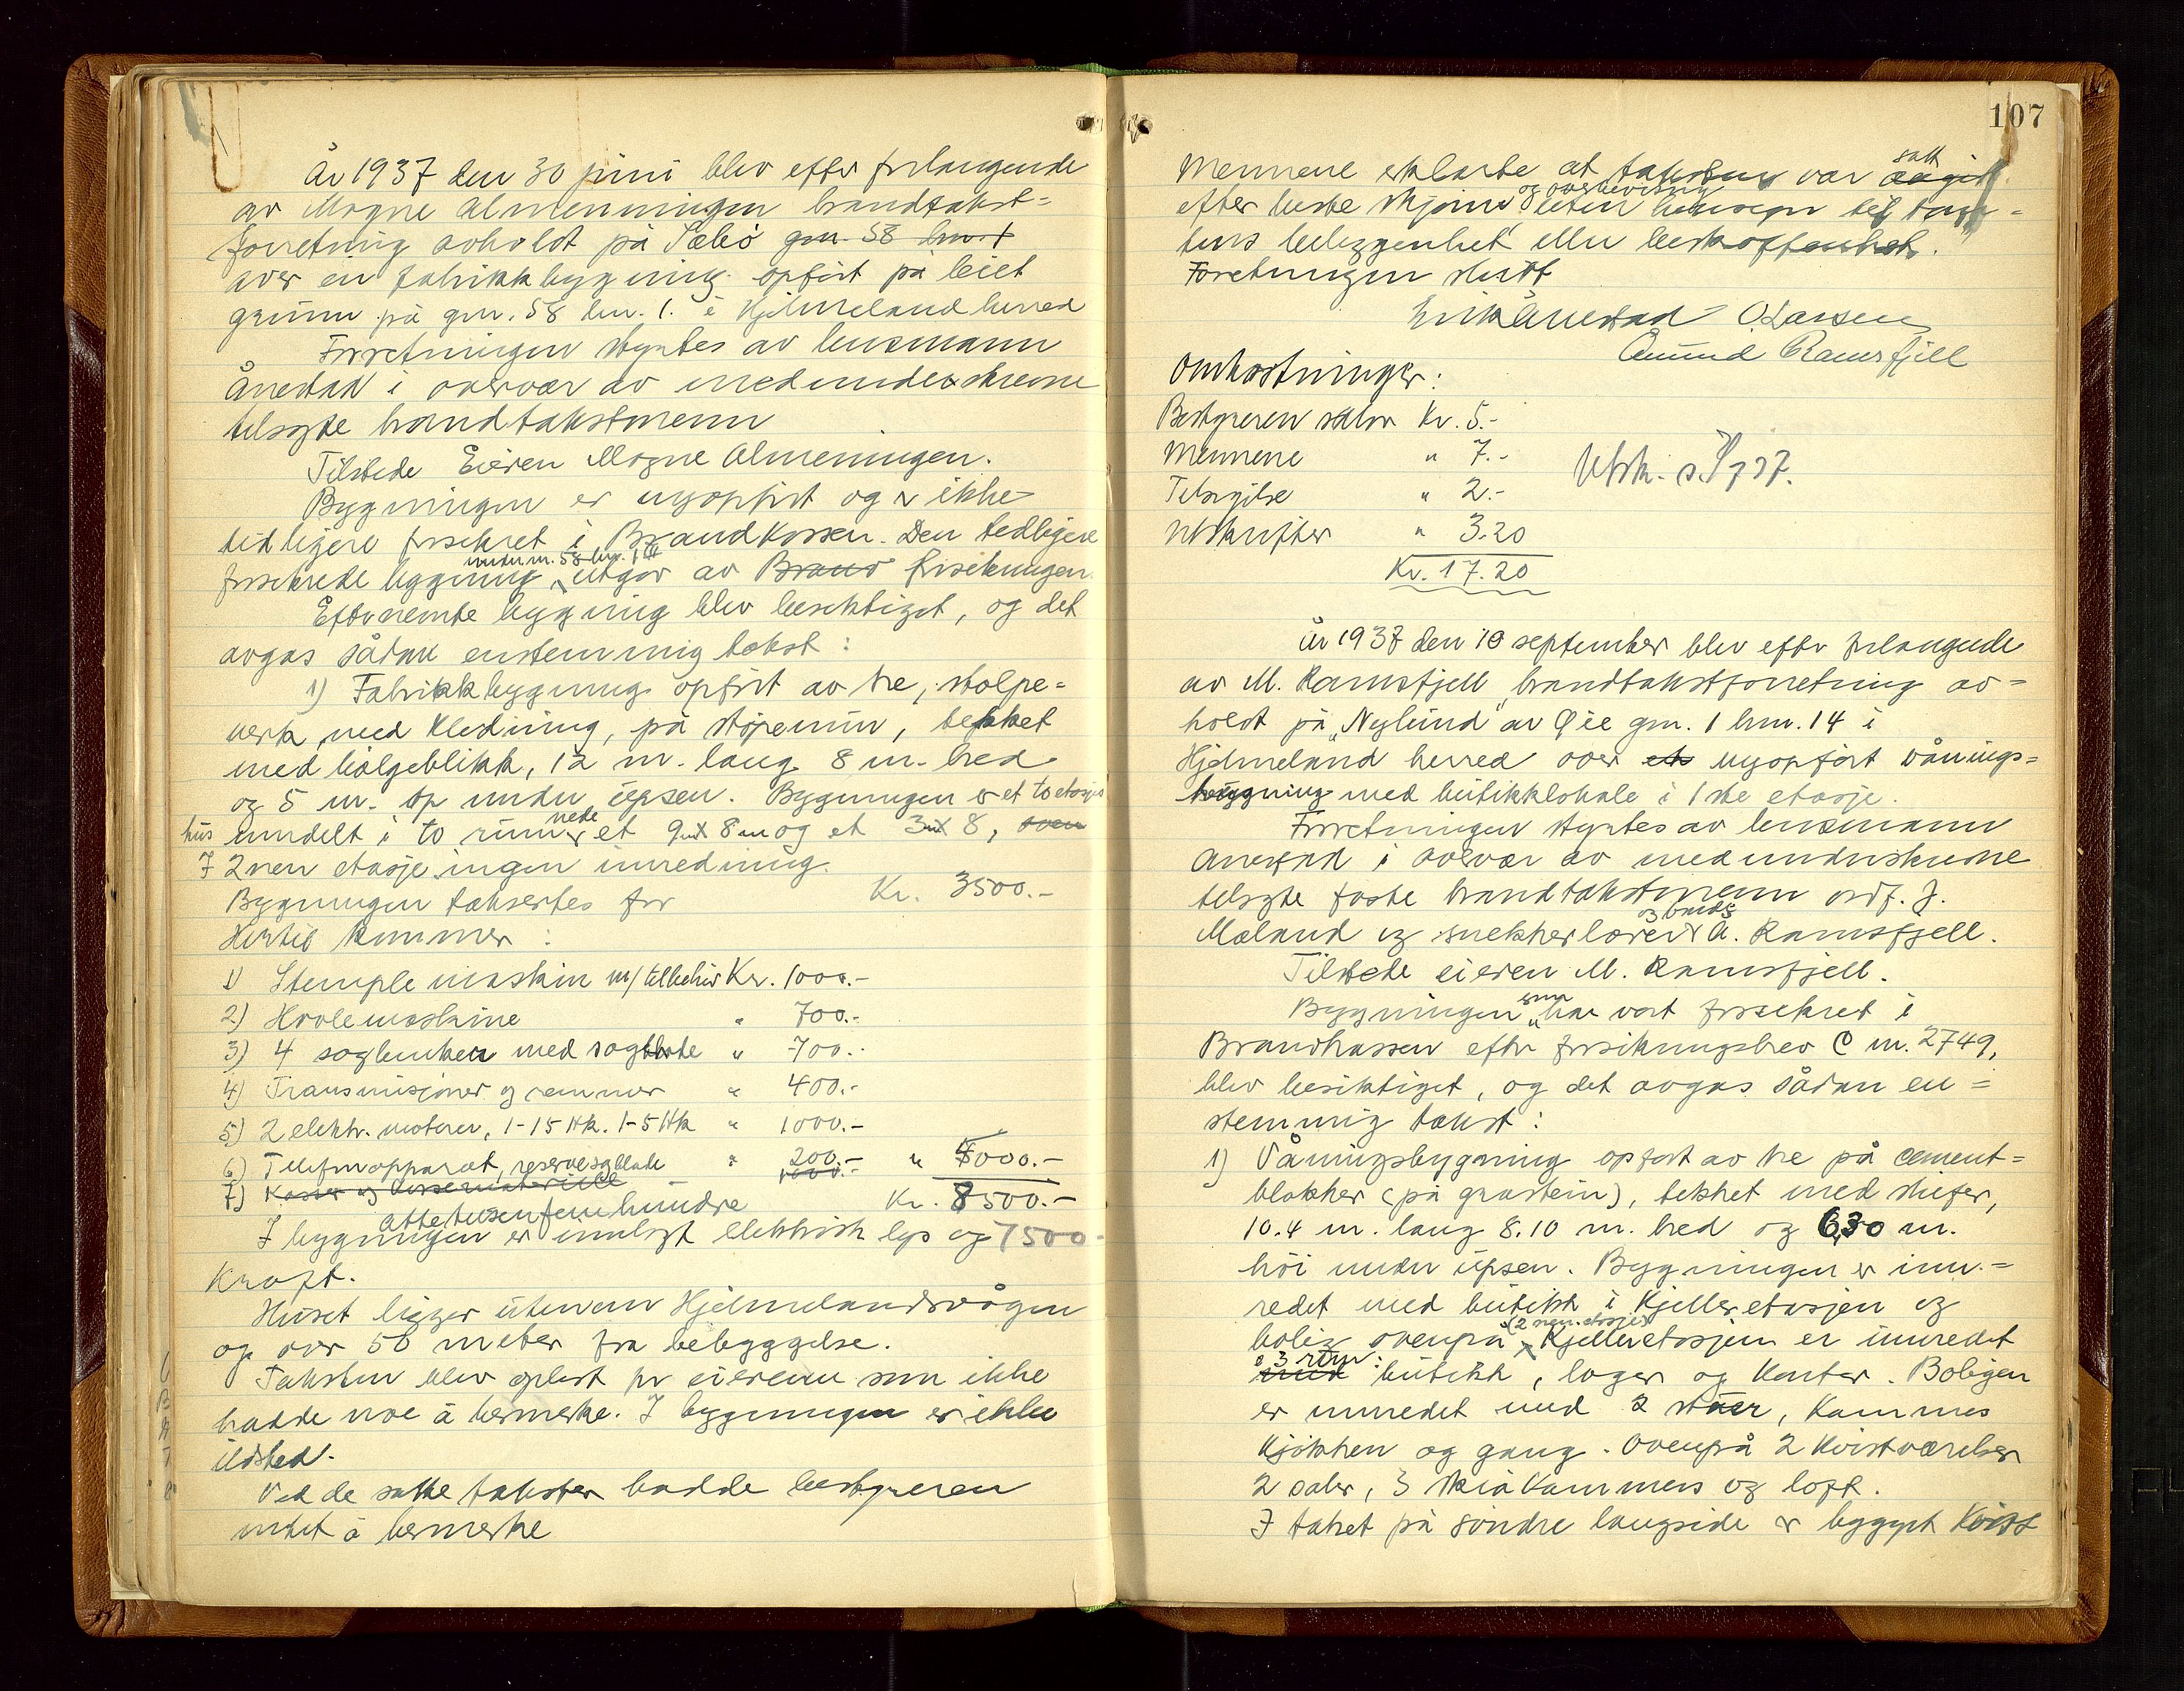 År 1937 den 30 juni blev efter forlangende
av Magne Almenningen brandtakst=
forretning avholdt på Sæbø gnr. 58 bnr. 1
over en fabrikkbygning opført på leiet
grunn på gnr. 58 bnr. 1. i Hjelmeland herred
Forretningen styrtes av lensmann
Årrestad i overvær av medunderskrevne
tilsagte brandtakstmenn
Tilstede Eieren Magne Almenningen.
Bygningen er nyopført og er ikke
tidligere forsikret i Brandkassen. Den tidligere
under nr. 58 bnr. 1
forsikrede bygning utgår av Brand forsikringen.
Eftернemte bygning blev besiktiget, og det
avgas sådan enstemmig takst:
1) Fabrikkbygning opført av tre, stolpe=
verk med kledning, på støpemur, tekket
med bølgeblikk, 12 m. lang 8 m. bred
og 5 m. op under upsen. Bygningen er et to etasjes
nede
hus inndelt i to rum et 9 x 8 m og et 3 x 8, oven
I 2nen etasje ingen innredning.
Bygningen takseres for Kr. 3500.-
Hertil kommer:
1) Stemplemaskin m/ tilbehør Kr. 1000.-
2) Hovlemaskine " 700.-
3) 4 sagbenker med sagblade " 700.-
4) Transmisjoner og remmer " 400.-
5) 2 elektr. motorer, 1-15 Hk. 1-5 Hk " 1000.-
6) Telefonapparat, reservesagblade " 200.- " 5000.-
7) Kasser og kassematerialer 1000.-
Kr. 8500.-
åttetusenfemhundre
I bygningen er innlagt elektrisk lys og 7500
Kraft.
Huset ligger utenom Hjelmelandsvågen
og over 50 meter fra bebyggelse.
Taksten blev oplest for eieren som ikke
hadde noe å bemerke. I bygningen er ikke
ildsted.
Ved de satte takster hadde bestyreren
intet å bemerke
107
satt
Mennene erklærte at taksten var avgitt
og overbevisning
efter beste skjønn uten hensyn til tom=
tens beliggenhet eller beskaffenhet.
Forretningen slutt
Erik Årrestad O. Larsen
Åmund Ramsfjell
Omkostninger:
Bestyreren salær Kr. 5.-
Mennene " 7.-
Tilsigelse " 2.-
Utskrifter " 3.20
Kr. 17.20
Utsk. s. 5/7 37.
År 1937 den 10 september blev efter forlangende
av M. Ramsfjell brandtakstforretning av=
holdt på "Nylund" av Øie gnr. 1 bnr. 14 i
Hjelmeland herred over et nyopført vånings=
bygning med butikklokale i 1ste etasje.
Forretningen styrtes av lensmann
Årrestad i overvær av medunderskrevne
tilsagte faste brandtakstmenn ordf. J.
og bruks
Mæland og snekkerlærer A. Ramsfjell.
Tilstede eieren M. Ramsfjell.
som
Bygningen har vært forsikret i
Brandkassen efter forsikringsbrev C nr. 2749,
blev besiktiget, og det avgas sådan en=
stemmig takst:
1) Våningsbygning opført av tre på cement=
blokker (på gråstein), tekket med skifer,
10.4 m. lang 8.10 m. bred og 6,30 m.
høi under upsen. Bygningen er inn=
redet med butikk i kjelleretasjen og
(2 nen etasje)
bolig ovenpå. Kjelleretasjen er innredet
3 rum:
butikk, lager og kontor. Boligen
er innredet med 2 stuer, kammes
kjøkken og gang. Ovenpå 2 kvistværelser
2 saler, 3 skråkammers og loft.
I taket på søndre langside er bygget kvist